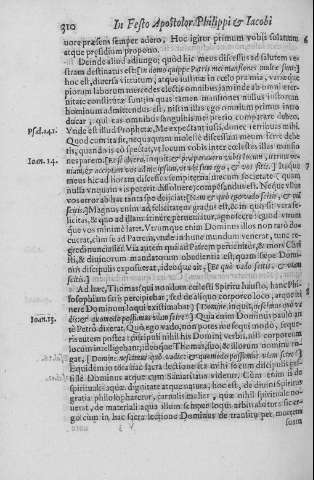 310 In Festo Apostolor. Philippi & Iacobi
uore præsens semper adero. Hoc igitur primum vobis solatium
atque præsidium propono.
Deinde aliud adiungo; quòd hic meus discessus ad salutem ve-
stram destinatus est: [In domo quippe Patris mei mansiones multæ sunt:]
hoc est, diuersis virtutum, atque iustitiæ in cœlo præmia, variæque
piorum laborum mercedes electis omnibus iam inde ab omni æter-
nitate constitutæ sunt: in quas tamen mansiones nullus iustorum
hominum admittendus est, nisi in illas ego omnium primus intro
ducar; qui eas omnibus sanguinis mei pretio comparare debeo.
Psal. 141. Vnde est illud Prophetæ, Me expectant iusti, donec retribuas mihi.
Quod cum ita sit, nequaquam molestè discessum meum ferre debe
tis, quando is eò spectat, vt locum vobis inter cœlestes illas mansio
Ioan. 14. nes parem. [Et si abiero, inquit, & præparauero vobis locum, iterum ve-
niam, & accipiam vos ad me ipsum, vt vbi sum ego, & vos sitis.] Itaque
meus hic ad horam discessus sempiterna mecum societate
nulla vnquam vis poterit dissoluere; compensandus est. Neque
vos error ab hac tanta spe deijciat: [Nam & quò ego vado scitis, & viam
scitis.] Magnus enim ad felicitatem gradus est, &
licitas, & quo ad illam itinere perueniatur,
que vos minimè latet. Verumque enim Dominus illos non raro do-
cuerat, cùm se ad Patrem, vnde in hunc mundum venerat,
gredi nunciaret. Via autem qua ad Patrem peruenitur, & mors Chri
sti, & diuinorum mandatorum obedientia est; quam sæpe Domi-
nus discipulis exposuerat, ideoque ait, [Et quò vado scitis, & viam
scitis.]
Ad hæc, Thomas (qui nondum cœlesti Spiritu hausto, hanc Phi-
losophiam satis percipiebat, sed de aliquo corporeo loco, atque iti
nere Dominum loqui existimabat) ita inquit: [Domine, nescimus quò va
Ioan. 13. dis: & quomodo possumus viam scire?] Quia enim Dominus paulò an
tè Petro dixerat, Quò ego vado, non potes me sequi modò, seque-
ris autem postea: discipuli nihil his Domini verbis, nisi corporeum
locum intelligebant; ideoque Thomas, suo, & illorum nomine ro-
gat, [Domine, nescimus quò vadis: & quomodo possumus viam scire?]
Equidem in tota hac sacra lectione ita mihi secum discipulis
se Dominus atque cum Samaritana videtur. Cùm enim is de
spirituales aquæ dignitate atque natura, hoc est, de diuini Spiritus
gratia philosopharetur, carnalis mulier, quæ nihil spirituale no-
uerat, de materiali aqua illum semper loqui arbitrabatur: sic er-
go cùm in hac sacra lectione Dominus de transitu per mortem
suam